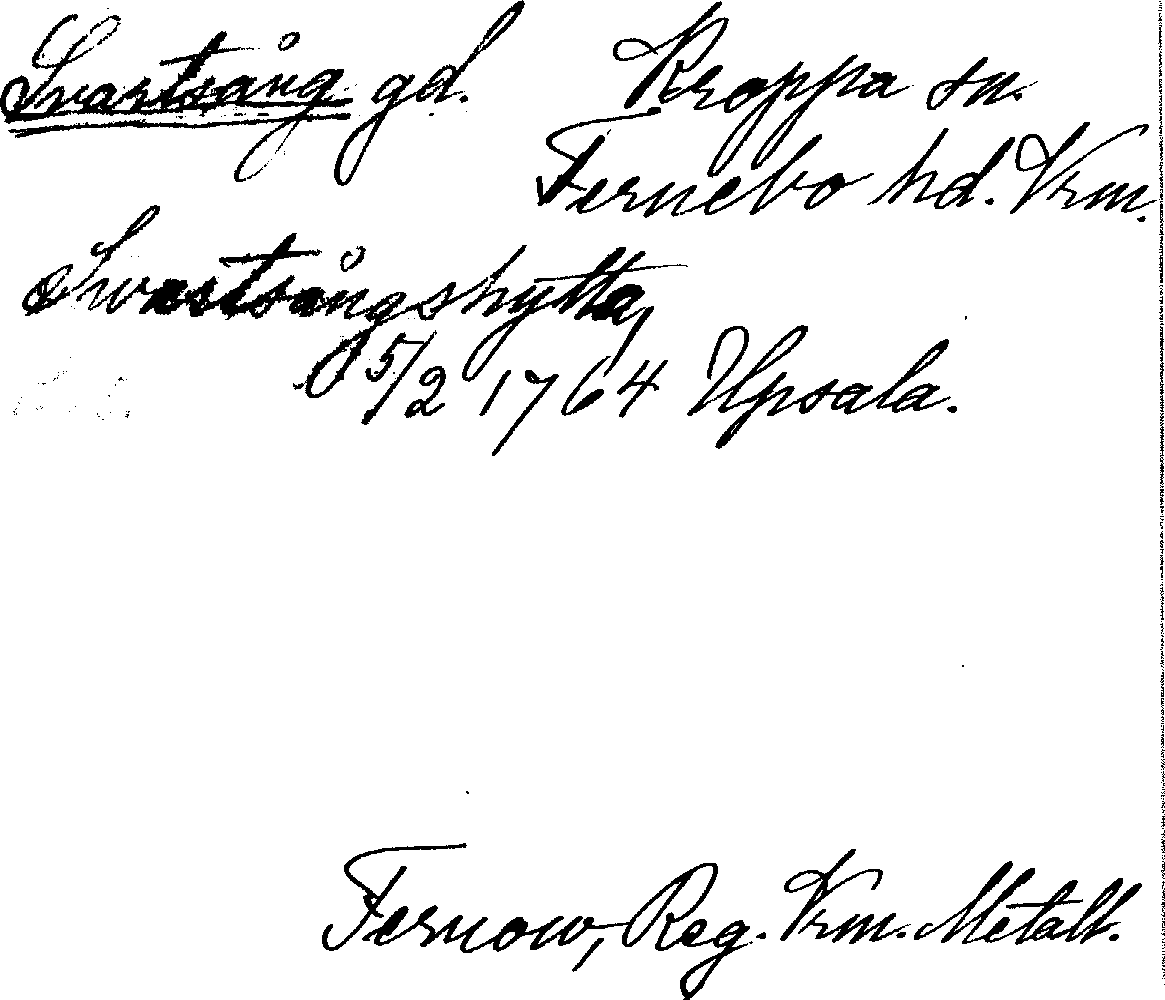 Svartsång gd. Kroppa sn.
Fernebo hd. Vrm.
Swartsångshytta,
5/2 1764 Upsala.
Fernow, Reg. Vrm. Metall.